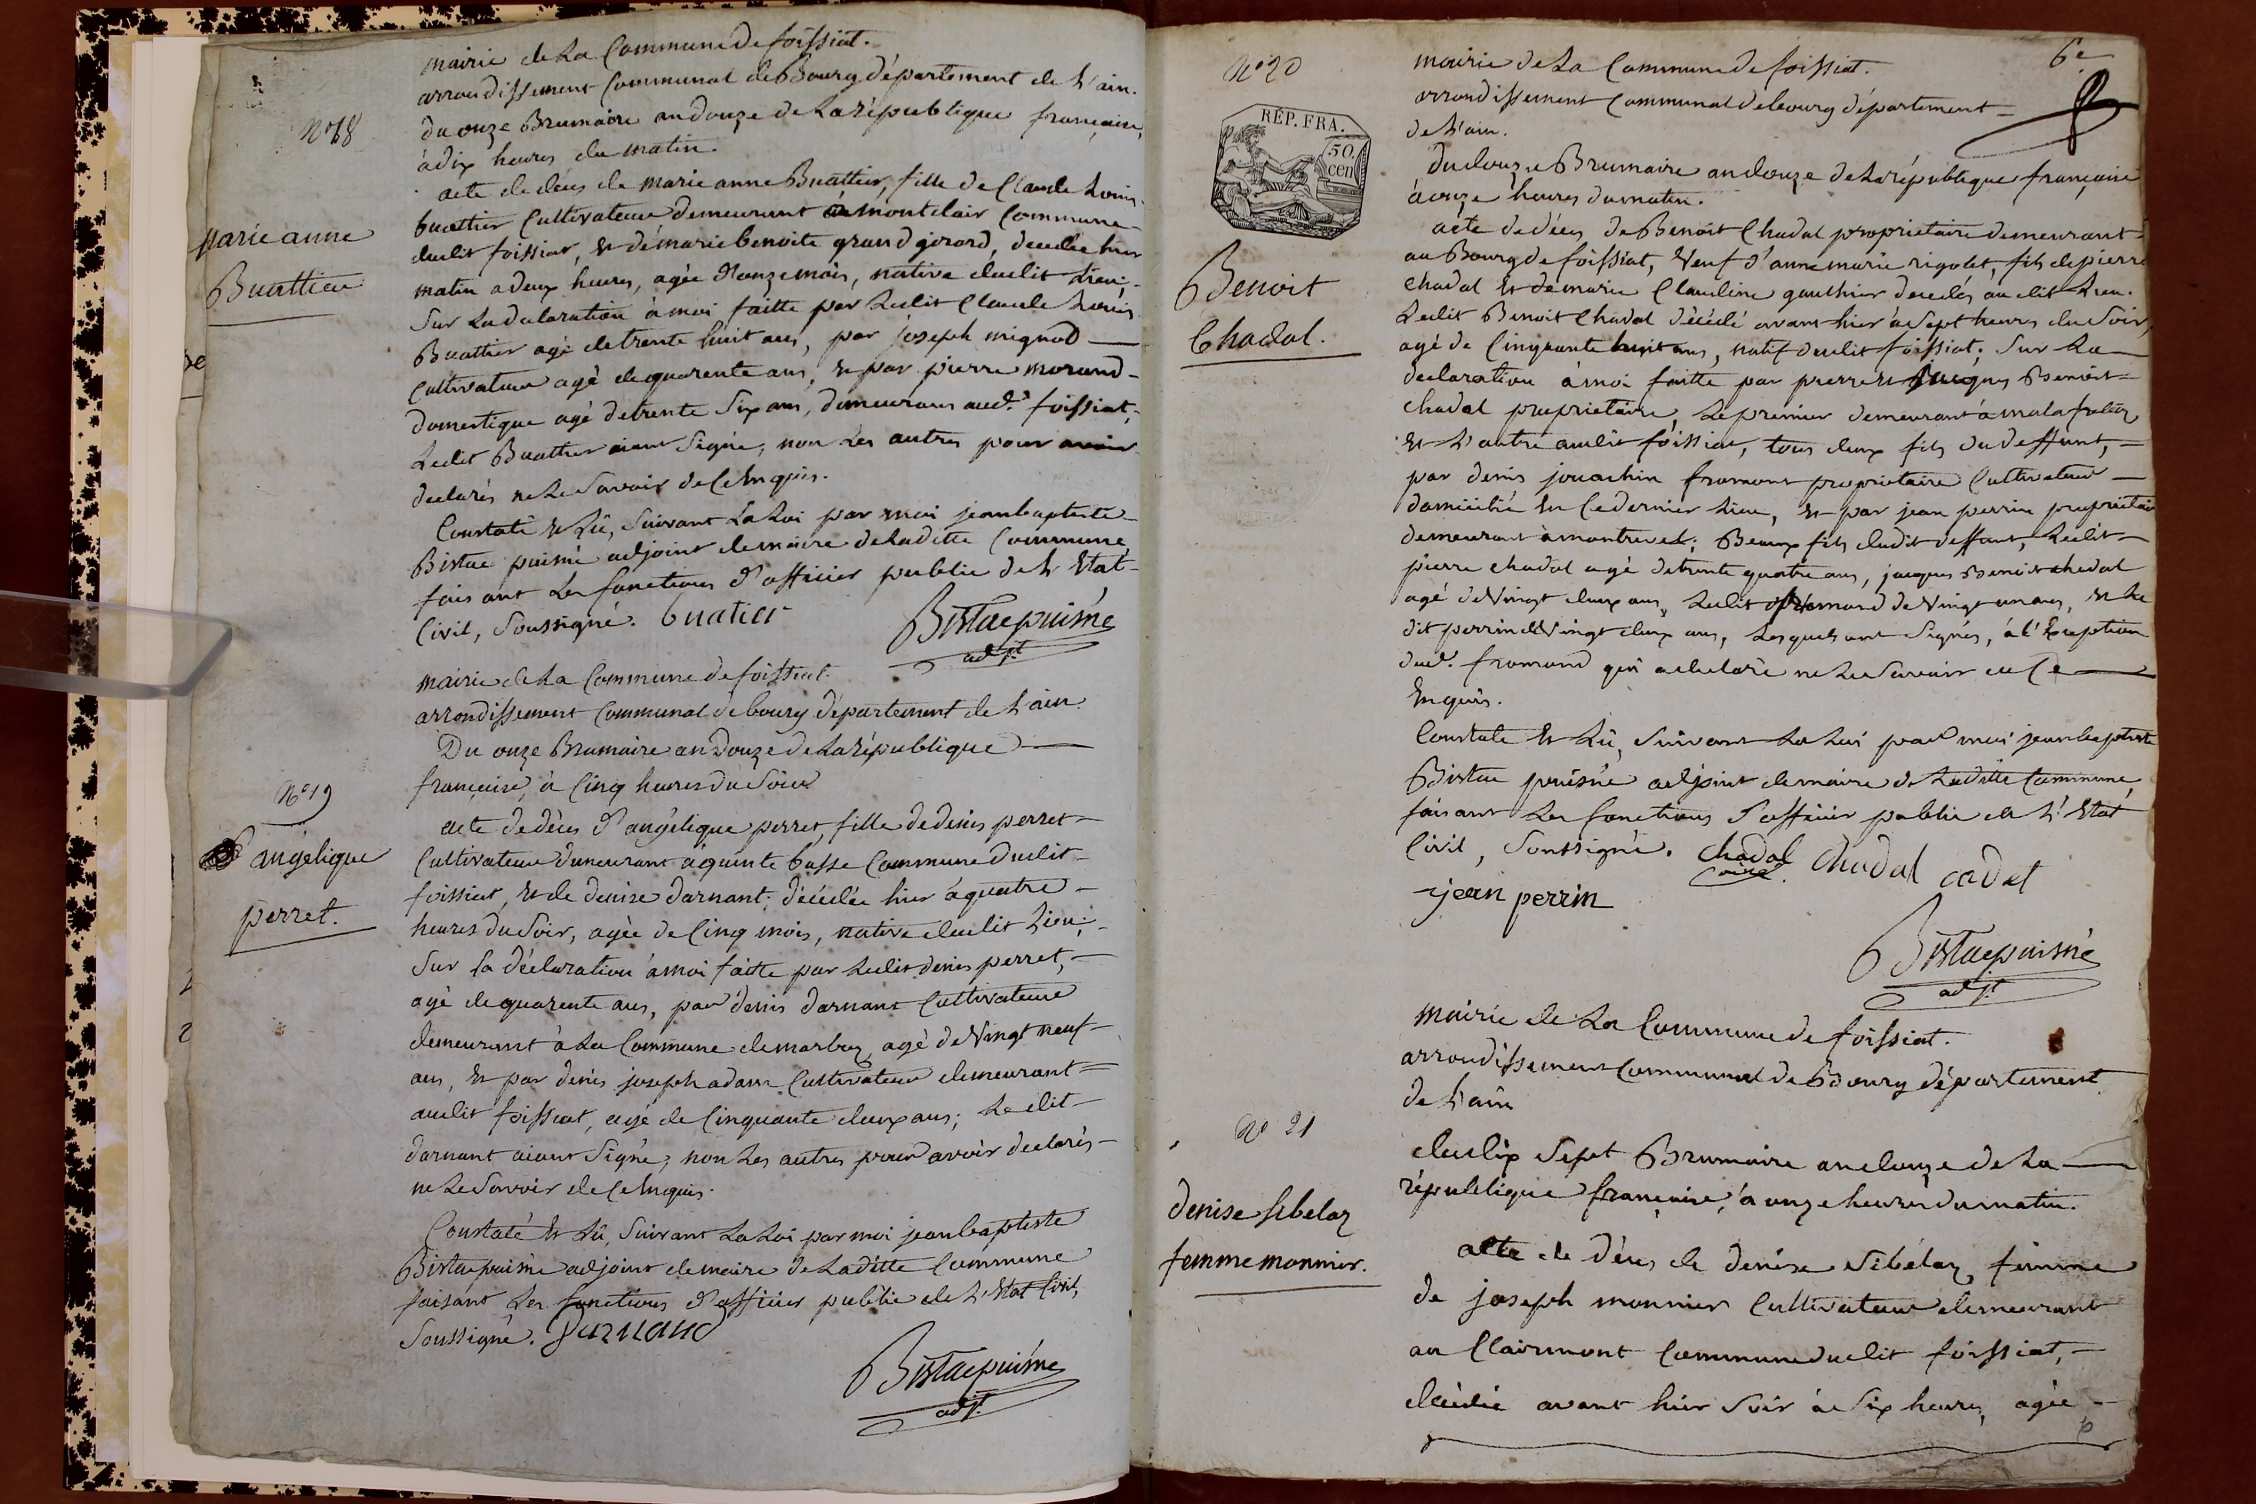 mairie de La Commune de foissiat.
arrondissement Communal de Bourg département de L'ain.
N°18
du onze Brumaire an douze de La république française,
à dix heures du matin.
acte de décès de marie anne Buattier, fille de Claude Louis
buattier Cultivateur demeurant a montclair Commune
dudit foissiat, Et de marie benoite grand girard, decedée hier
marie anne
Buattier
matin a deux heures, agée d'onze mois, native dudit Lieu;
Sur La declaration à moi faitte par Ledit Claude Louis
Buattier agé de trente huit ans, par joseph mignod
Cultivateur agé de quarente ans, Et par pierre morand
domestique agé de trente Six ans, demeurans aud.t foissiat;
Ledit Buattier aiant Signé, non Les autres pour avoir
declarés ne Le Savoir de Ce Enquis.
Constaté Et Lû, Suivant La Loi par moi jean baptiste
Bistac puisné adjoint de maire de Laditte Commune
faisant Les fonctions d'officier public de L'Etat
Civil, Soussigné. buatier Bistac puisné
adj.t
mairie de La Commune de foissiat.
arrondissement Communal de bourg département de L'ain.
Du onze Brumaire an Douze de La République
française, à Cinq heures du Soir
N°19
acte de décès d'angélique perret, fille de denis perret
Cultivateur demeurant à quinte basse Commune dudit
angélique
perret.
foissiat, Et de denise darnant; décédée hier à quatre
heures du Soir, agée de Cinq mois, native dudit Lieu;
Sur la déclaration à moi faitte par Ledit denis perret,
agé de quarente ans, par denis darnant Cultivateur
demeurant à La Commune de marboz, agé de Vingt neuf
ans, Et par denis joseph adam Cultivateur demeurant
audit foissiat, agé de Cinquante deux ans; Le dit
darnant aiant Signé, non Les autres pour avoir declarés
ne Le Savoir de Ce Enquis.
Constaté Et Lû, Suivant La Loi par moi jean baptiste
Bistac puisné adjoint de maire de Laditte Commune
faisant Les fonctions d'officier public de L'Etat Civil,
Soussigné. Darnand
Bistac puisné
adj.t
6e
N°20
mairie de La Commune de foissiat.
arrondissement Communal de bourg département
de L'ain.
RÉP. FRA.
50
cen
du douze Brumaire an douze de La république française
à onze heures du matin.
acte de décès de Benoit Chadal proprietaire demeurant
au Bourg de foissiat, Veuf d'anne marie rigolet, fils de pierre
Benoit
Chadal.
chadal Et de marie Claudine gauthier decedés au dit Lieu.
Ledit Benoit Chadal décédé avant hier à Sept heures du Soir,
agé de Cinquante huit ans, natif dudit foissiat; Sur La
declaration à moi faitte par pierre Et jacques Benoist
chadal proprietaire, Le premier demeurant à malafretaz
Et L'autre audit foissiat, tous deux fils du deffunt,
par denis jouachin fromont proprietaire Cultivateur
domicilié En Ce dernier Lieu, Et par jean perrin proprietaire
demeurant à montrevel; Beaux fils dudit deffunt, Ledit
pierre chadal agé de trente quatre ans, jacques Benoist chadal
agé de Vingt deux ans, Ledit fromond de Vingt un ans, Et Le
dit perrin de Vingt deux ans, Lesquels ont Signés, à L'Exception
dud.t fromond qui a declaré ne Le Savoir de Ce
Enquis.
Constaté Et Lû, Suivant La Loi par moi jean baptiste
Bistac puisné adjoint de maire de Laditte Commune,
faisant Les fonctions d'officier public de L'Etat
Civil, Soussigné. chadal Chadal cadet
jean perrin
Bistac puisné
adj.t
mairie de La Commune de foissiat.
arrondissement Communal de Bourg département
de L'ain
N° 21
du dix Sept Brumaire an douze de La
république française, à onze heures du matin.
denise sibelaz
femme monnier.
acte de décès de denise Sibélaz femme
de joseph monnier Cultivateur demeurant
au Clairmont Commune dudit foissiat,
décédée avant hier Soir à Six heures, agée